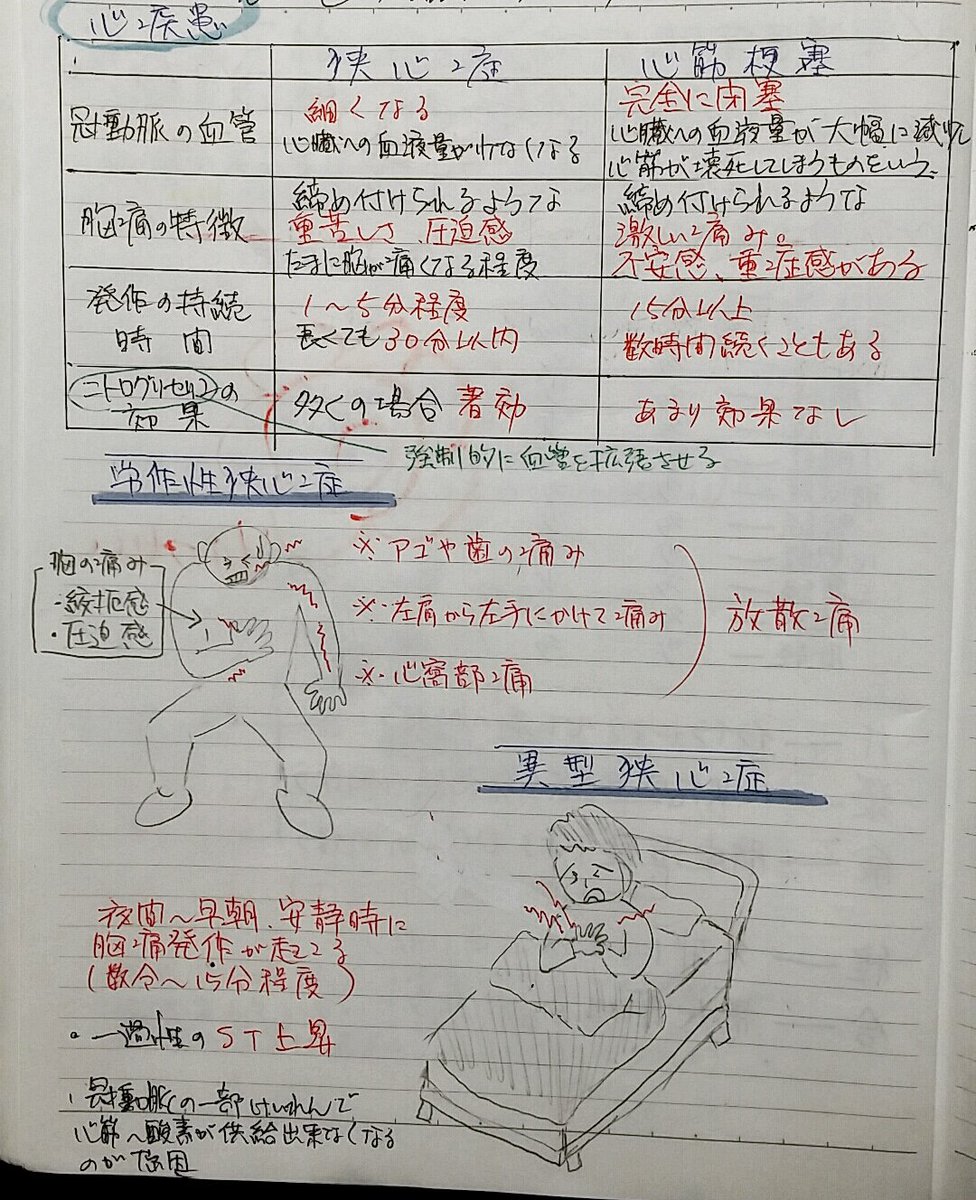 心疾患
狭心症
心筋梗塞
冠動脈の血管
細くなる
心臓への血液量が少なくなる
完全に閉塞
心臓への血液量が大幅に減少し
心筋が壊死してしまうものをいう。
胸痛の特徴
締め付けられるような
重苦しさ、圧迫感
たまに胸が痛くなる程度
締め付けられるような
激しい痛み。
不安感、重症感がある
発作の持続
時間
1〜5分程度
長くても30分以内
15分以上
数時間続くこともある
ニトログリセリンの
効果
多くの場合著効
あまり効果なし
強制的に血管を拡張させる
労作性狭心症
胸の痛み
・絞扼感
・圧迫感
※・アゴや歯の痛み
※・左肩から左手にかけて痛み
※・心窩部痛
放散痛
異型狭心症
夜間〜早朝、安静時に
胸痛発作が起こる
(数分〜15分程度)
・一過性のST上昇
・冠動脈の一部けいれんで
心筋へ酸素が供給出来なくなる
のが原因